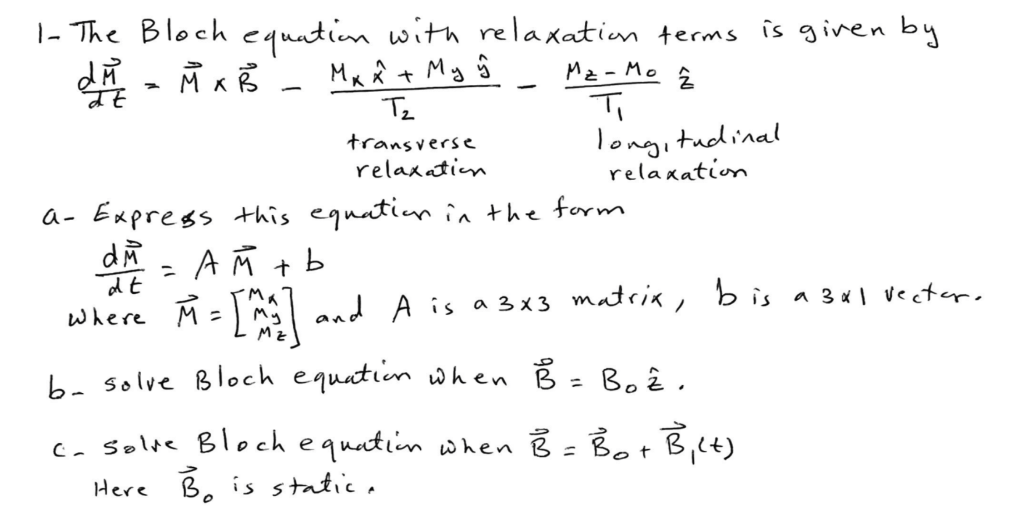 1- The Bloch equation with relaxation terms is given by
dM⃗/dt = M⃗ x B⃗ - (Mx x̂ + My ŷ)/T2 - (Mz - Mo)/T1 ẑ
transverse relaxation
longitudinal relaxation
a- Express this equation in the form
dM⃗/dt = A M⃗ + b
where M⃗ = [Mx My Mz] and A is a 3x3 matrix, b is a 3x1 vector.
b- solve Bloch equation when B⃗ = Bo ẑ.
c- solve Bloch equation when B⃗ = B⃗o + B⃗1(t)
Here B⃗o is static.